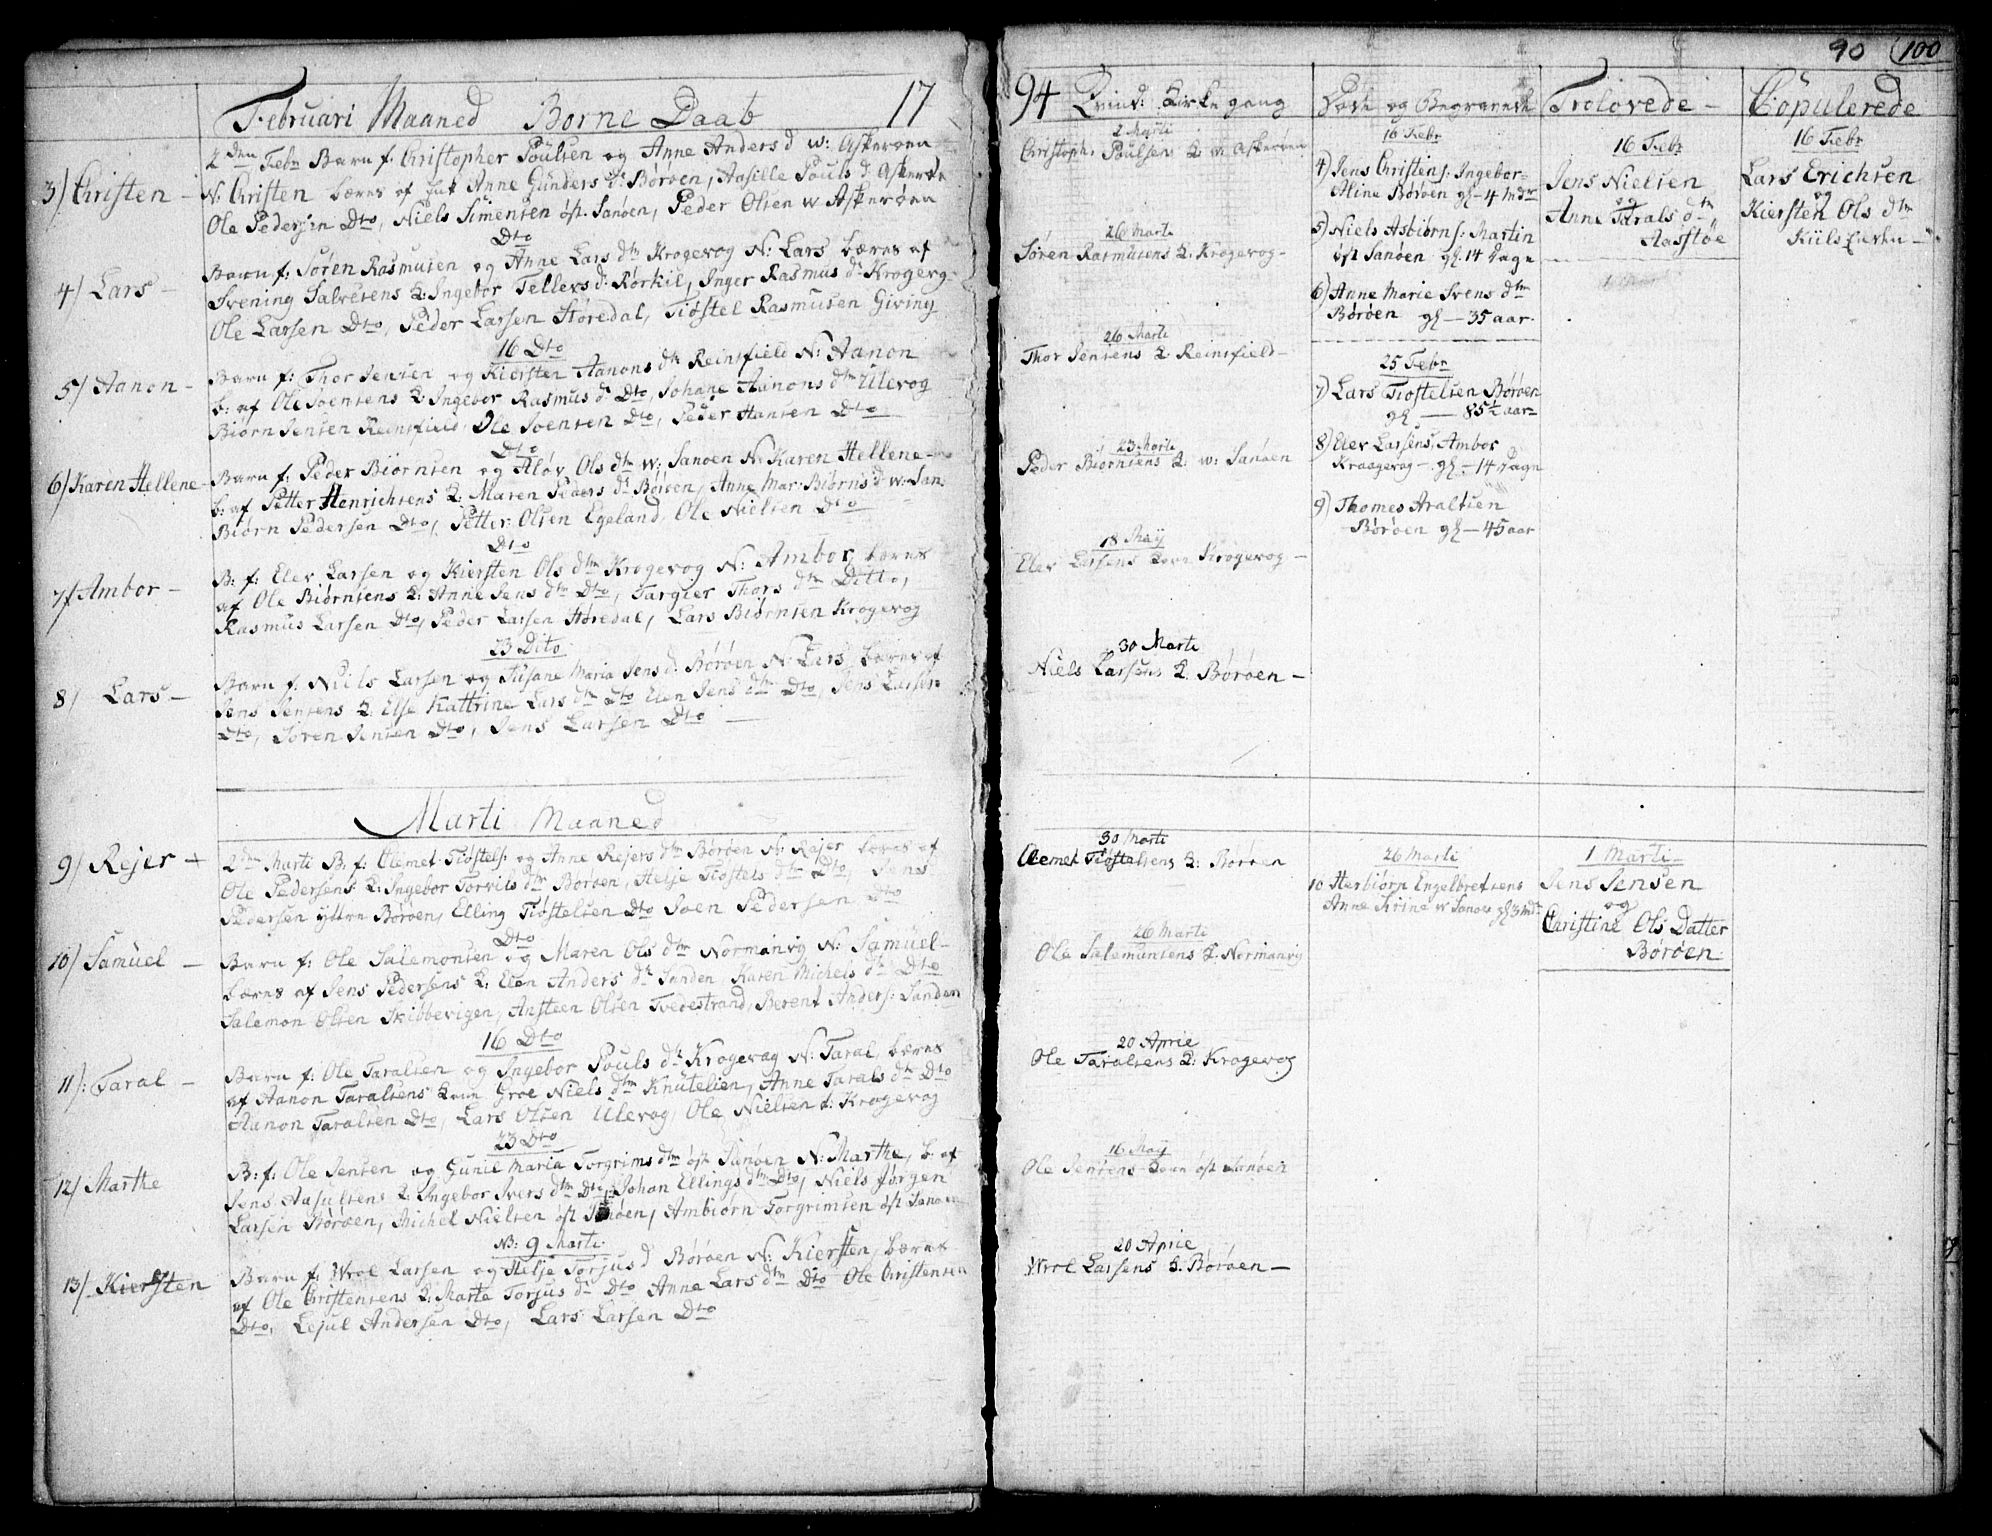 90 100
Februari Maaned Børne Daab 17
3) Christen –
2den Febr Barn f: Christopher Poulsen og Anne Anders d w: Askerøen
N: Christen bæres af Anne Gunders d: Børøen, Aasille Pouls d: Askerøe
Ole Pedersen Dto, Niels Simensen øst. Sanøen, Peder Olsen w Askerøen
Dto
4) Lars –
Barn f: Søren Rasmusen og Anne Lars dtr Krogevog N: Lars bæres af
Svening Salvesens Q: Ingebor Tellevs d: Rørkil, Inger Rasmus d: Krogevg
Ole Larsen Dto, Peder Larsen Høredal, Tiøstel Rasmusen Giving
16 Dto
5) Aanon –
Barn f: Thor Jensen og Kiersten Aanons dtr Reinsfield N: Aanon
b: af Ole Soensens Q Ingebor Rasmus d: Dto, Johane Aanons dtr Ulevog
Biørn Jensen Reinsfield, Ole Soensen Dto, Peder Hansen Dto
Dto
6) Karen Hellene –
Barn f: Peder Biørnsen og Aløv Ols dtr w: Sanøen N: Karen Hellene –
b: af Petter Henrichsens Q: Maren Peders d: Børøen, Anne Mar: Biørns d w: San
Biørn Pedersen Dto, Petter Olsen Egeland, Ole Nielsen Dto
Dto
7) Ambor –
B: f: Elev Larsen og Kiersten Ols dtr Krogevog N: Ambor bæres
af Ole Biørnsens Q: Anne Jens dtr Dto, Targier Thors dtr Ditto,
Rasmus Larsen Dto, Peder Larsen Høredal, Lars Biørnsen Krogevog
23 Dito
8) Lars –
Barn f: Niels Larsen og Susane Maria Jens d: Børøen N: Lars bæres af
Jens Jensens Q: Else Kattrine Lars dtr Dto Elen Jens dtr Dto, Jens Larsen
Dto, Søren Jensen Dto, Jens Larsen Dto
Marti Maaned
9) Rejer +
2den Marti B: f: Clemet Tiøstels: og Anne Rejers dtr Børøen N: Rejer bæres af
Ole Pedersens Q: Ingebor Torvils dtr Børøen, Helje Tiøstels dtr Dto, Jens
Pedersen yttre Børøen, Elling Tiøstelsen Dto Soen Pedersen Dto
Dto
10) Samuel –
Barn f: Ole Salemonsen og Maren Ols dtr Normanvig N: Samuel –
bæres af Jens Pedersens Q: Elen Anders dtr Sanden, Karen Michels dtr Dto
Salemon Olsen Skibbevigen, Ansteen Olsen Tvedestrand, Berent Anders: Sanden
16 Dto
11) Taral –
Barn f: Ole Taralsen og Ingebor Pouls dtr Krogevog N: Taral, bæres
af Aanon Taralsens Qvin Groe Niels dtr Knutelien, Anne Tarals dtr Dto
Aanon Taralsen Dto, Lars Olsen Ulevog, Ole Nielsen Krogevog
23 Dto
12) Marthe
B: f: Ole Jensen og Gunil Maria Torgrims dtr øst Sanøen N: Marthe, b. af
Jens Aasulsens Q: Ingebor Ivers dtr Dto, Johan Ellings dtr Dto, Niels Jørgen
Larsen Børøen, Michel Nielsen øst Sanøen, Ambiørn Torgrimsen øst Sanøen
NB: 9 Marti
13) Kiersten
Barn f: Wrol Larsen og Helje Torjus d Børøen N: Kiersten, bæres
af Ole Christensens Q: Marte Torjus d: Dto Anne Lars dtr Dto Ole Christensen
Dto, Lejul Andersen Dto, Lars Larsen Dto
94 Qvind: Kirkegang
2 Marti
Christoph: Poulsens Q w Askerøen
26 Marti
Søren Rasmusens Q: Krogevog –
26 Marti
Thor Jensens Q Reinsfield –
23 Marti
Peder Biørnsens Q: w: Sanøen
18 May
Elev Larsens Qvin Krogevog –
30 Marti
Niels Larsens Q. Børøen –
30 Marti
Clemet Tiøstelsens Q: Børøen
26 Marti
Ole Salemunsens Q. Normanvig
20 April
Ole Taralsens Q: Krogevog
16 May
Ole Jensens Qvin øst Sanøen
20 April
Wrol Larsens Q. Børøen –
Døde og Begravede
16 Febr
4) Jens Christens: Ingebor
Aline Børøen gl – 4 Mdr
5) Niels Asbiørns: Martin
øst Sanøen gl: 14 Dagn
6) Anne Marie Svens dtr
Børøen gl – 35 aar.
25 Febr
7) Lars Tiøstelsen Børøen
gl – 85½ aar
8) Elev Larsens Ambor
Kraagevog – gl – 14 Dagn
9) Thomes Aralsen
Børøen gl – 45 aar
26 Marti
10 Herbiørn Engelbretsens
Anne Trine w Sanøe gl 3 Md
Trolovede –
16 Febr
Jens Nielsen
og
Anne Tarals dtr
Aasstøe
1 Marti
Jens Jensen
og
Christine Ols Datter
Børøen
Copulerede
16 Febr
Lars Erichsen
og
Kiersten Ols dtr